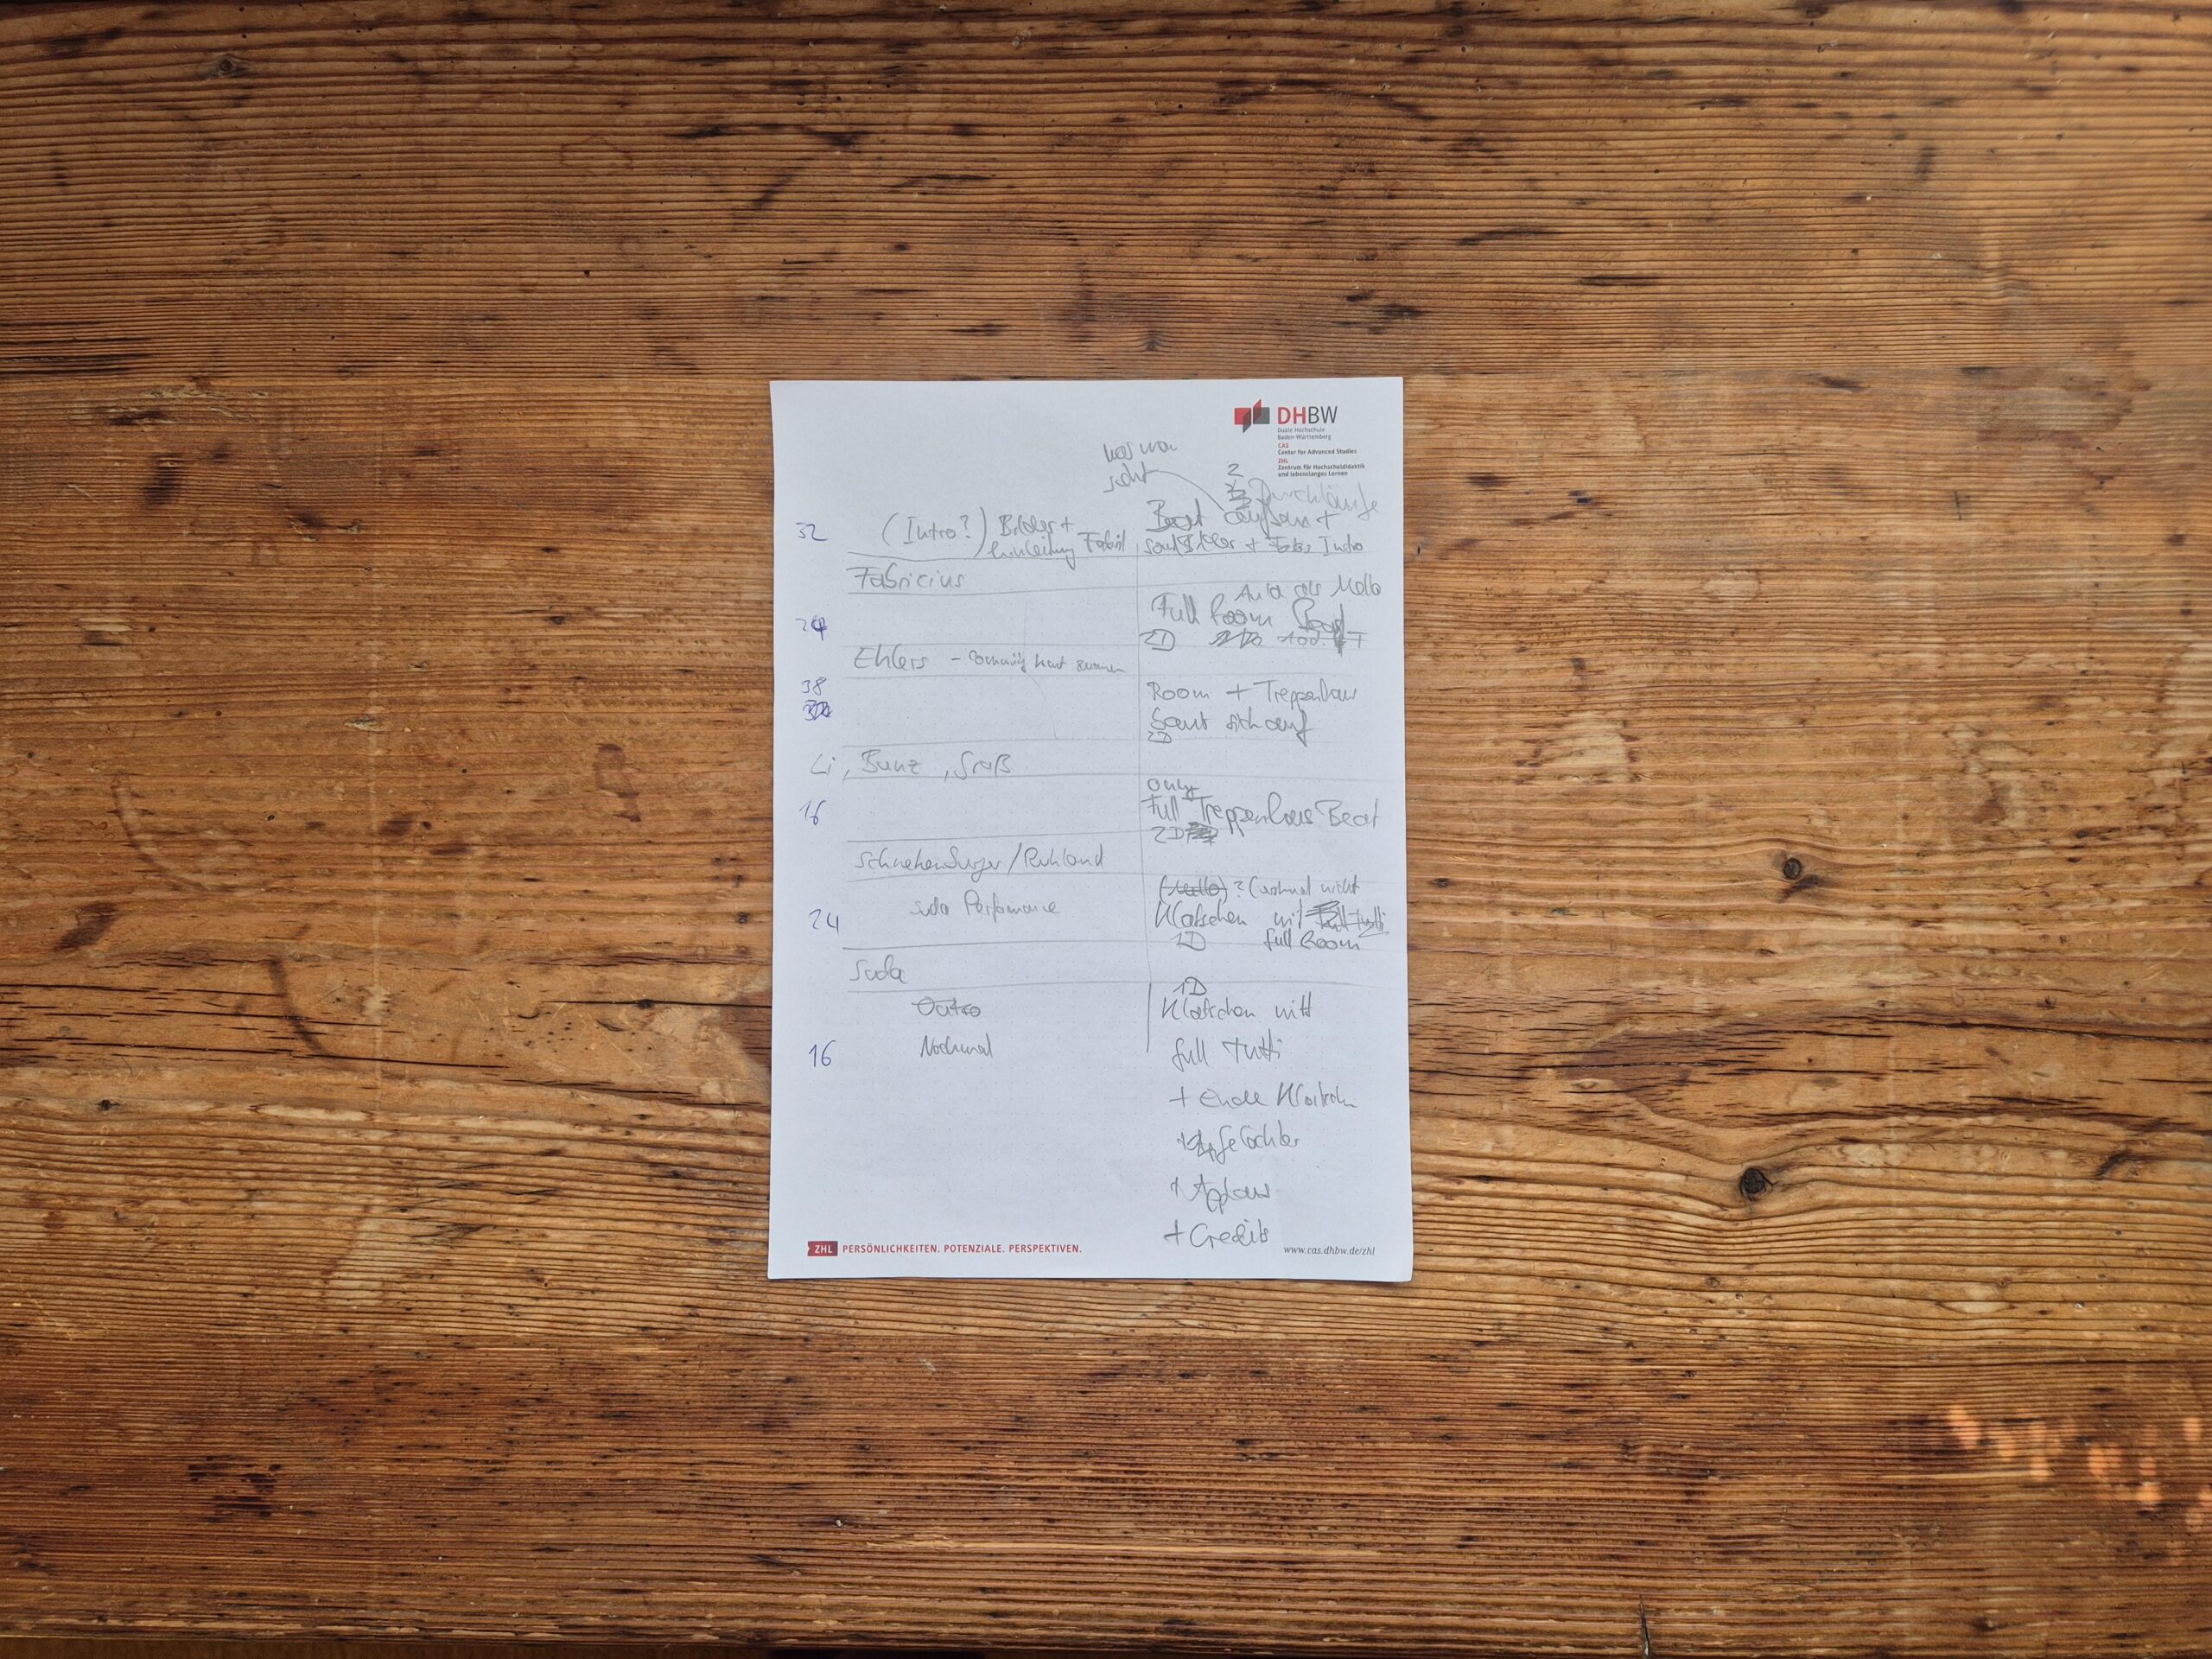 DHBW
Duale Hochschule
Baden-Württemberg
CAS
Center for Advanced Studies
ZHL
Zentrum für Hochschuldidaktik
und lebenslanges Lernen
was man
sieht
2
Durchläufe
32 (Intro?) Bilder +
Einleitung
Beat aufbau +
+ Intro
Fabricius
Aula als
Full Room Beat
24
2D
Ehlers -
38
Room + Treppenhaus
baut sich auf
2D
Li, Bunz, Graß
only
16
Full Treppenhaus Beat
2D
Schnekenburger/Ruhland
(Hallo) ? ( nochmal nicht
Suda Performance
24
Klatschen mit full tutti
1D full Room
Suda
1D
Outro
Klatschen mit
16 Nochmal
full Tutti
+ Ende Klatschen
+ Gelächter
+ Applaus
+ Credits
ZHL PERSÖNLICHKEITEN. POTENZIALE. PERSPEKTIVEN.
www.cas.dhbw.de/zhl